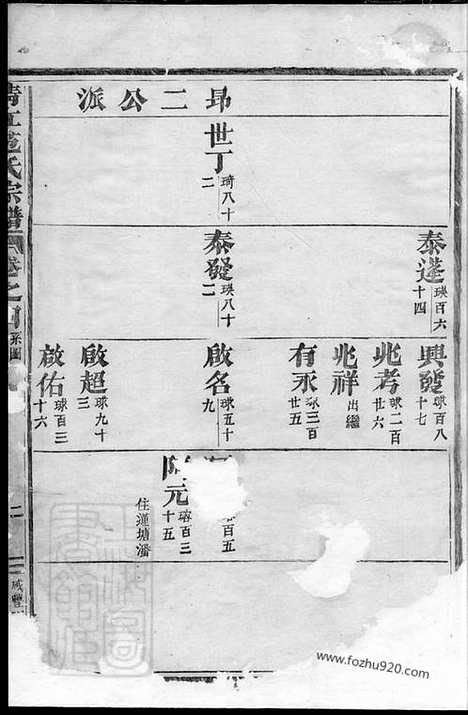 昻二公派
世丁 琦八十二
泰蓬 瑛百六十四
泰發 瑛八十二
興發 球百八十七
兆考 球二百廿六
兆祥 出繼
有永 球三百廿五
啟名 球五十九
啟超 球九十三
啟佑 球百三十六
百五
元 百三十五
住蓮塘潘
氏宗譜
卷之四
系圖
二
咸豐
www.fozhu920.com